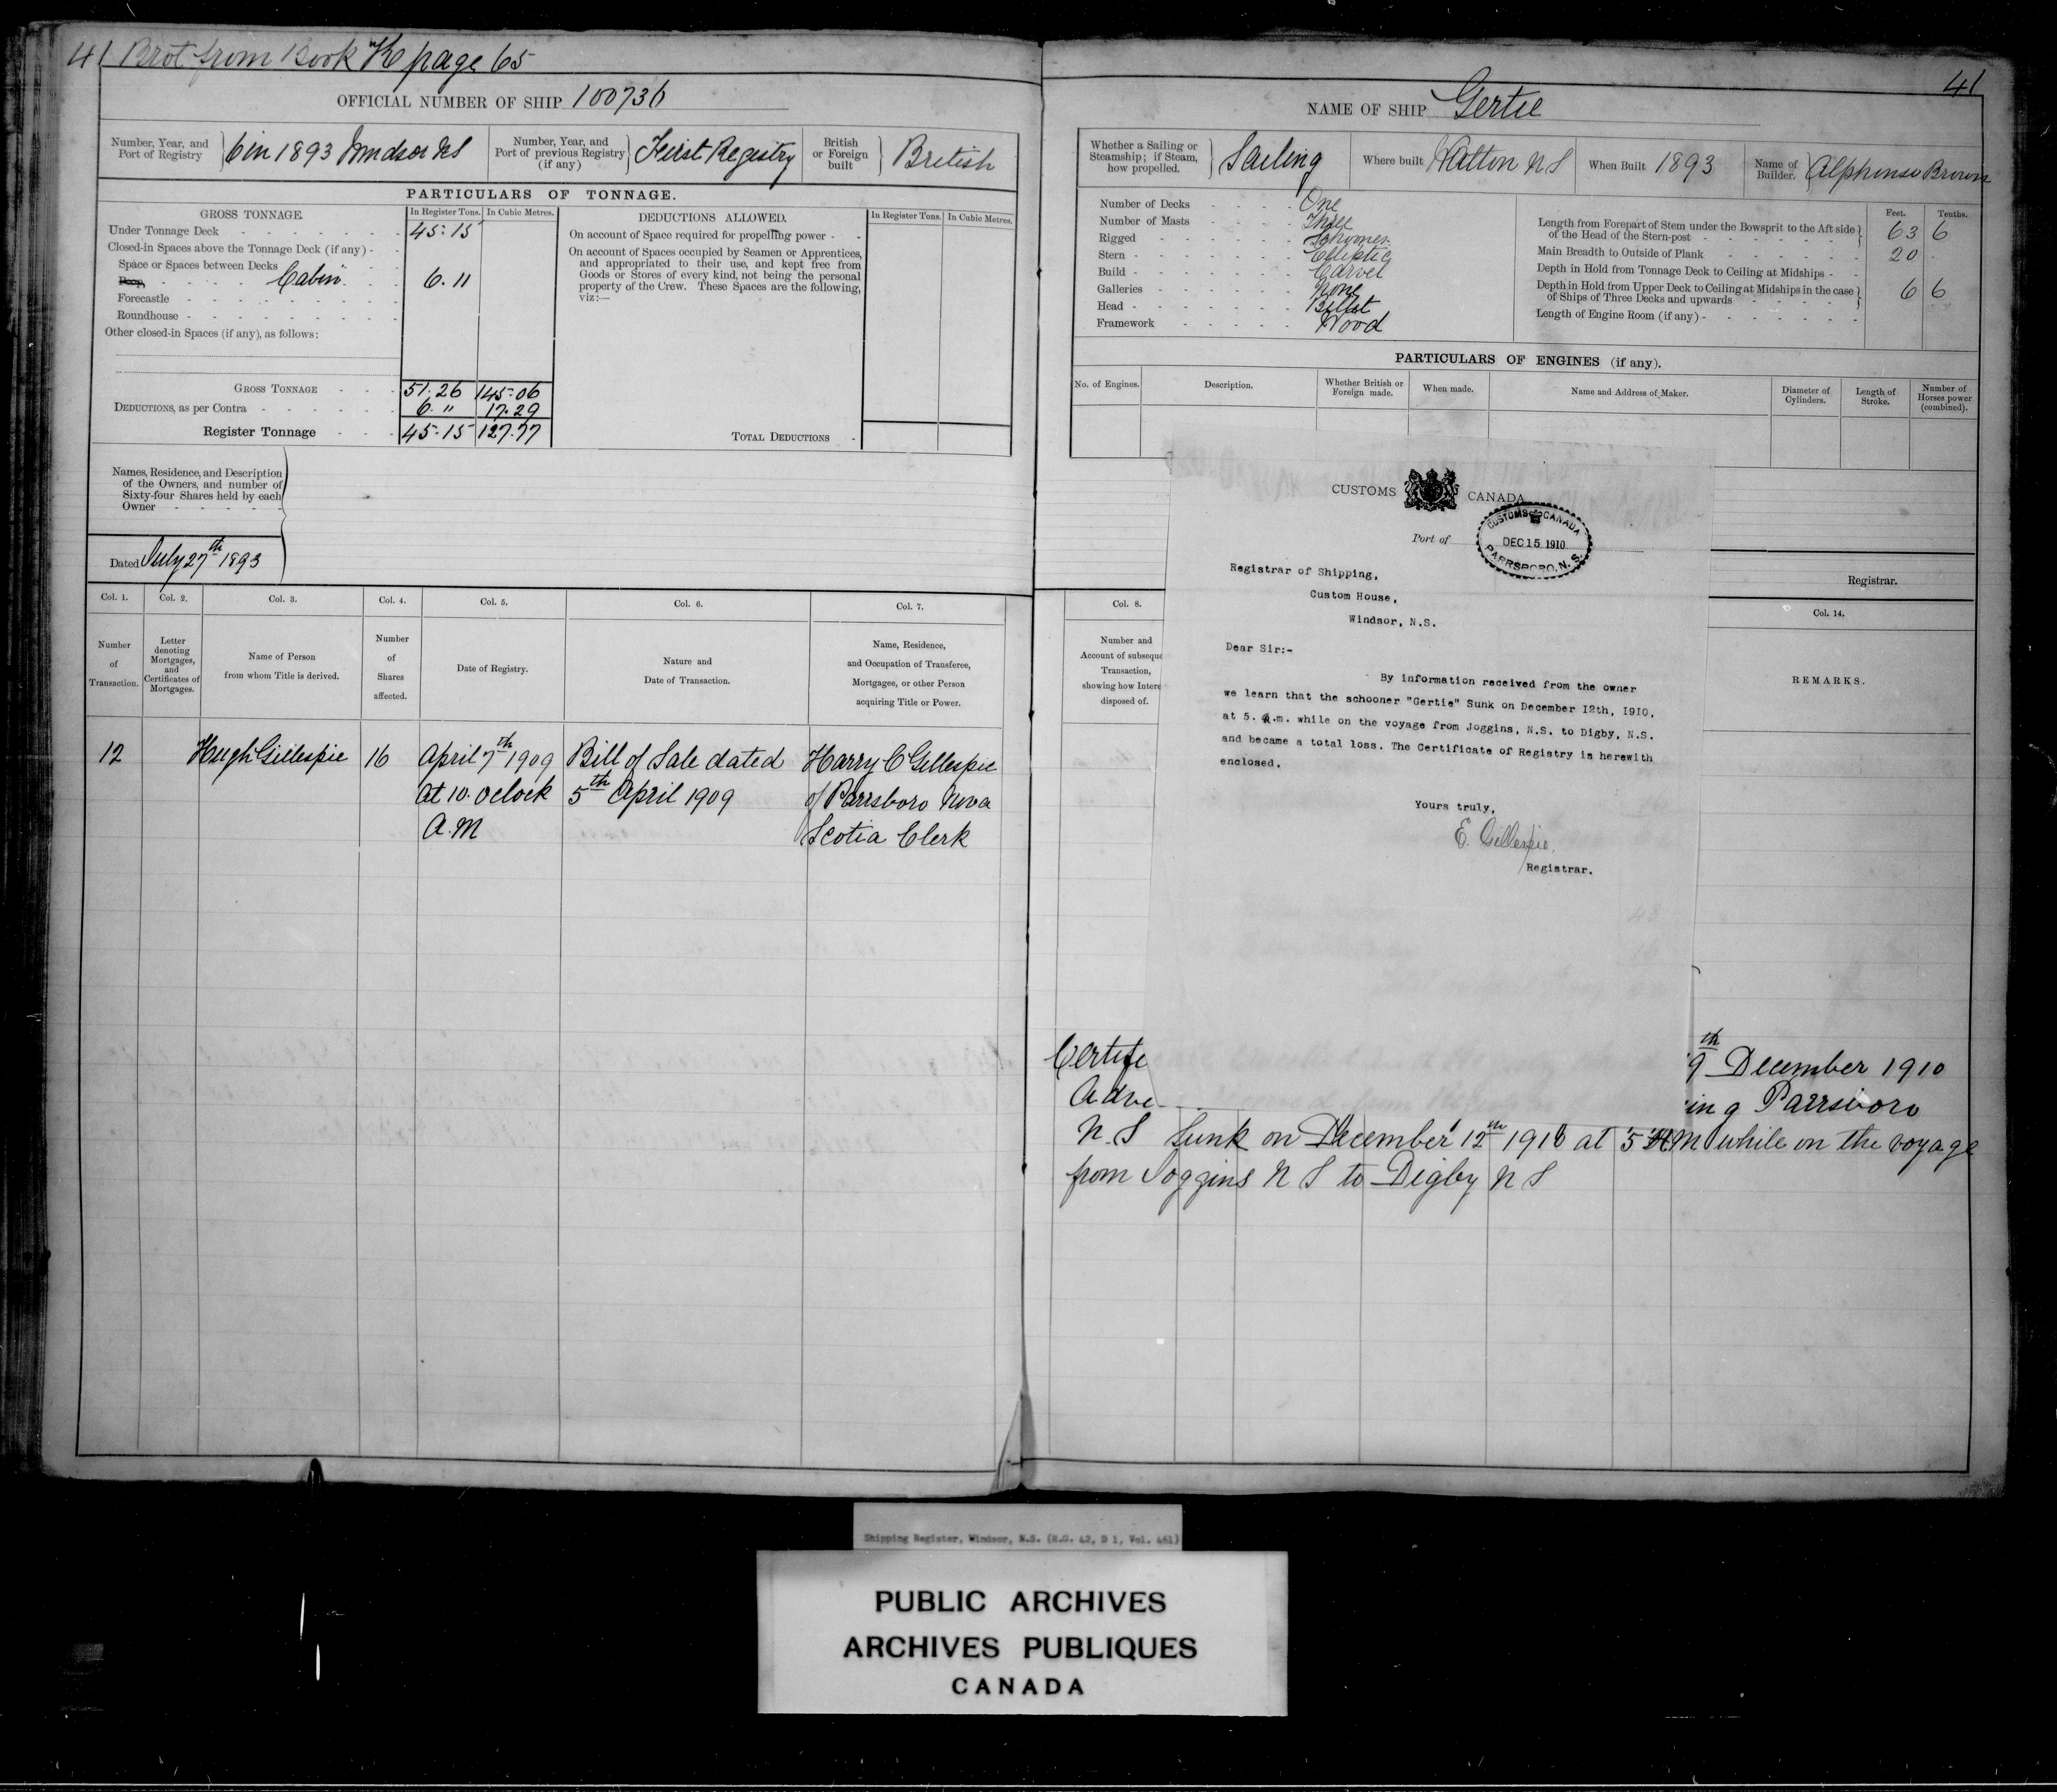 41 Brot from Book K page 65
OFFICIAL NUMBER OF SHIP 100736
Number, Year, and Port of Registry } 6 in 1893 Windsor NS
Number, Year, and Port of previous Registry (if any) } First Registry
British or Foreign built } British
PARTICULARS OF TONNAGE.
GROSS TONNAGE.
In Register Tons. In Cubic Metres.
Under Tonnage Deck 45.15
Closed-in Spaces above the Tonnage Deck (if any) -
Space or Spaces between Decks
Poop, Cabin 6.11
Forecastle
Roundhouse
Other closed-in Spaces (if any), as follows:
GROSS TONNAGE 51.26 145.06
DEDUCTIONS, as per Contra 6.11 17.29
Register Tonnage 45.15 127.77
DEDUCTIONS ALLOWED.
In Register Tons. In Cubic Metres.
On account of Space required for propelling power -
On account of Spaces occupied by Seamen or Apprentices,
and appropriated to their use, and kept free from
Goods or Stores of every kind, not being the personal
property of the Crew. These Spaces are the following,
viz:—
TOTAL DEDUCTIONS -
Names, Residence, and Description
of the Owners, and number of
Sixty-four Shares held by each
Owner
Dated July 27th 1893
Col. 1. Col. 2. Col. 3. Col. 4. Col. 5. Col. 6. Col. 7.
Number of Transaction.
Letter denoting Mortgages, and Certificates of Mortgages.
Name of Person from whom Title is derived.
Number of Shares affected.
Date of Registry.
Nature and Date of Transaction.
Name, Residence, and Occupation of Transferee, Mortgagee, or other Person acquiring Title or Power.
12 Hugh Gillespie 16 April 7th 1909 Bill of Sale dated Harry C Gillespie
At 10 oclock 5th April 1909 of Parrsboro Nova
A.M Scotia Clerk
41
NAME OF SHIP Gertie
Whether a Sailing or Steamship; if Steam, how propelled. } Sailing
Where built Walton NS
When Built 1893
Name of Builder. } Alphonso Brown
Number of Decks One
Number of Masts Three
Rigged Schooner
Stern Elliptic
Build Carvel
Galleries None
Head Billet
Framework Wood
Feet. Tenths.
Length from Forepart of Stem under the Bowsprit to the Aft side
of the Head of the Stern-post 63 6
Main Breadth to Outside of Plank 20 .
Depth in Hold from Tonnage Deck to Ceiling at Midships -
Depth in Hold from Upper Deck to Ceiling at Midships in the case
of Ships of Three Decks and upwards 6 6
Length of Engine Room (if any) -
PARTICULARS OF ENGINES (if any).
No. of Engines. Description. Whether British or Foreign made. When made. Name and Address of Maker. Diameter of Cylinders. Length of Stroke. Number of Horses power (combined).
CUSTOMS CANADA
Port of
CUSTOMS CANADA
DEC 15 1910
PARRSBORO, N.S.
Registrar of Shipping,
Custom House,
Windsor, N.S.
Dear Sir:-
By information received from the owner
we learn that the schooner "Gertie" Sunk on December 12th, 1910,
at 5. a.m. while on the voyage from Joggins, N.S. to Digby, N.S.
and became a total loss. The Certificate of Registry is herewith
enclosed.
Yours truly,
E. Gillespie.
Registrar.
Registrar.
Col. 8. Col. 14.
Number and
Account of subseque
Transaction,
showing how Intere
disposed of.
REMARKS.
Certifi 9th December 1910
Adve ing Parrsboro
N.S Sunk on December 12th 1910 at 5 AM while on the voyage
from Joggins N S to Digby N S
Shipping Register, Windsor, N.S. (R.G. 42, D 1, Vol. 461)
PUBLIC ARCHIVES
ARCHIVES PUBLIQUES
CANADA